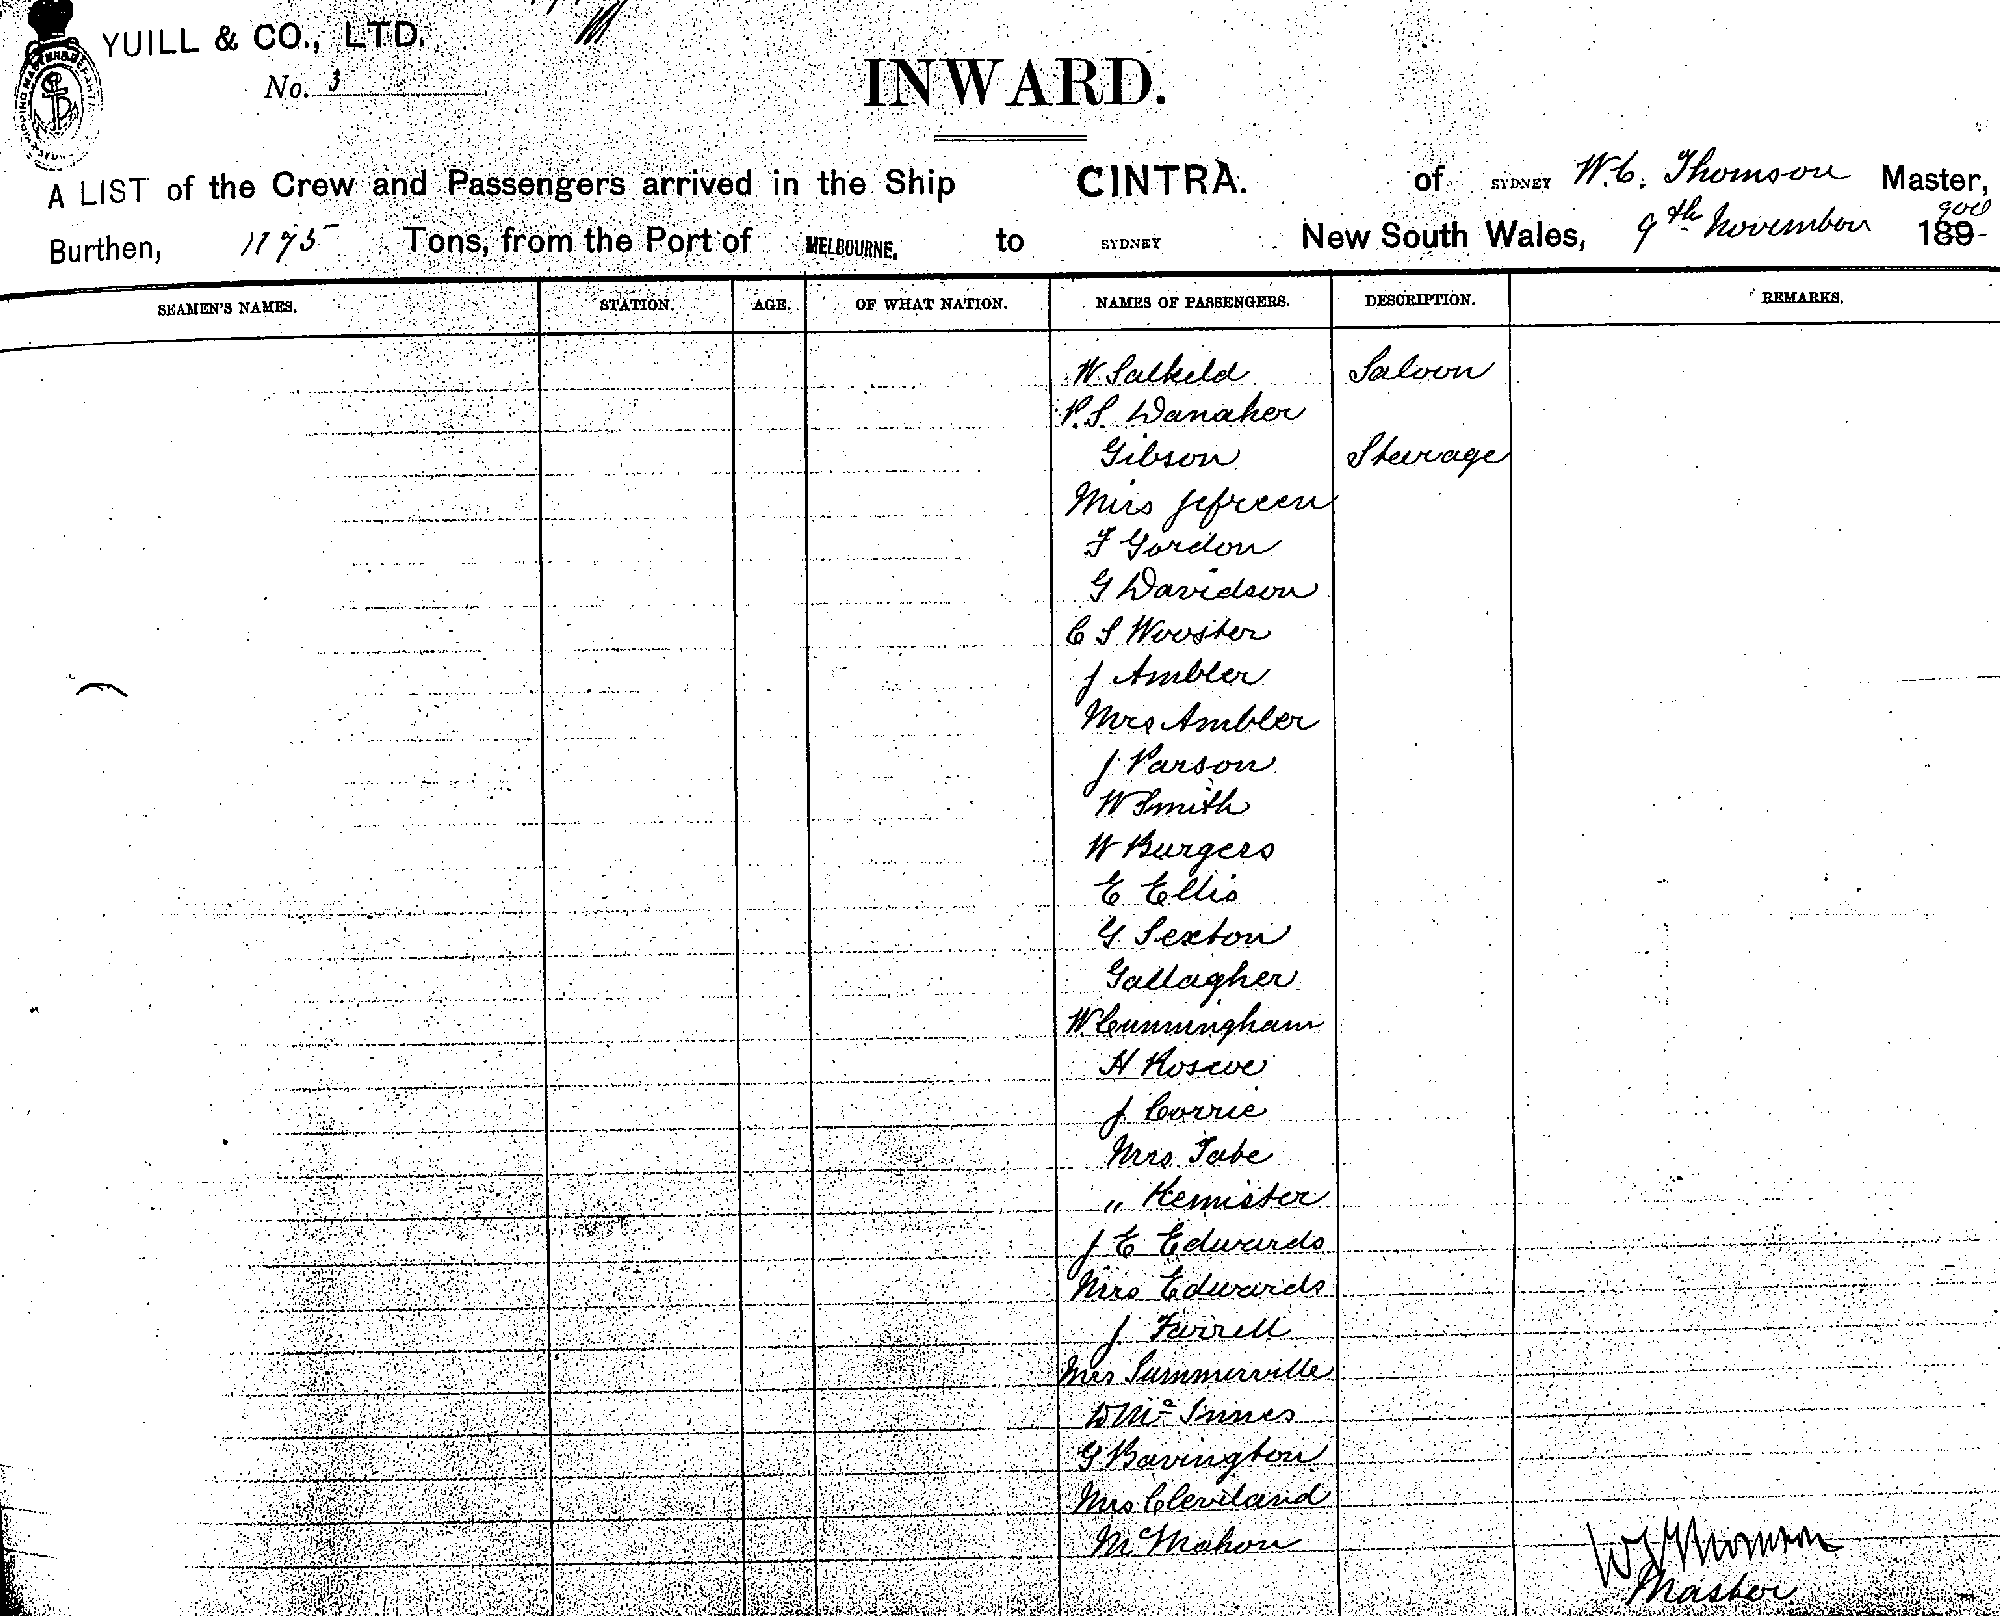 YUILL & CO., LTD.
No. 3
INWARD.
A LIST of the Crew and Passengers arrived in the Ship CINTRA. of SYDNEY W. C. Thomson Master,
Burthen, 1175 Tons, from the Port of MELBOURNE, to SYDNEY New South Wales, 9th November 189- 900
SEAMEN'S NAMES. STATION. AGE. OF WHAT NATION. NAMES OF PASSENGERS. DESCRIPTION. REMARKS.
W Salkeld Saloon
P. S. Danaher
Gibson Steerage
Miss Jefreen
F Gordon
G Davidson
C S Wooster
J Ambler
Mrs Ambler
J Parson
W Smith
W Burgess
E Ellis
G Sexton
Gallagher
W. Cunningham
H Roscoe
J Corrie
Mrs Tabe
" Kemister
J E Edwards
Mrs Edwards
J Farrell
Mrs Summerville
D Mc Innes
G Bavington
Mrs Cleveland
McMahon
W C Thomson
Master